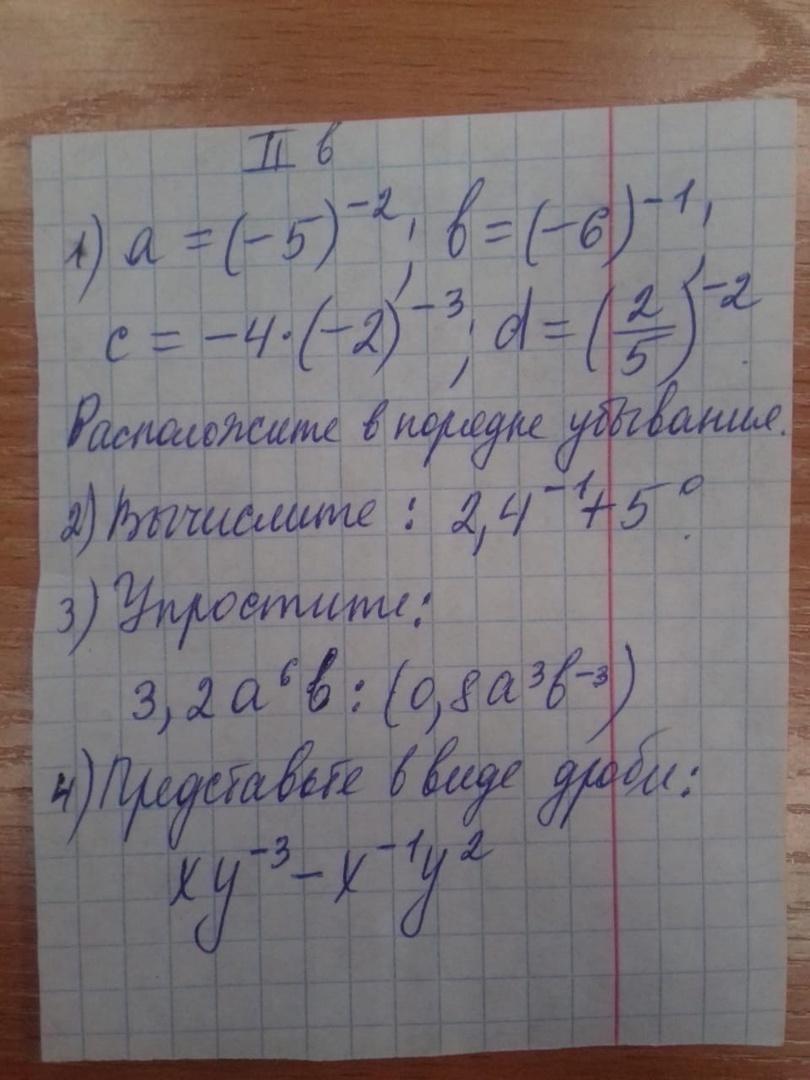 II в
1) a = (-5)⁻²; b = (-6)⁻¹;
c = -4·(-2)⁻³; d = (2/5)⁻².
Расположите в порядке убывания.
2) Вычислите: 2,4⁻¹+5⁰.
3) Упростите:
3,2a⁶b : (0,8a³b⁻³)
4) Представьте в виде дроби:
xy⁻³ - x⁻¹y²